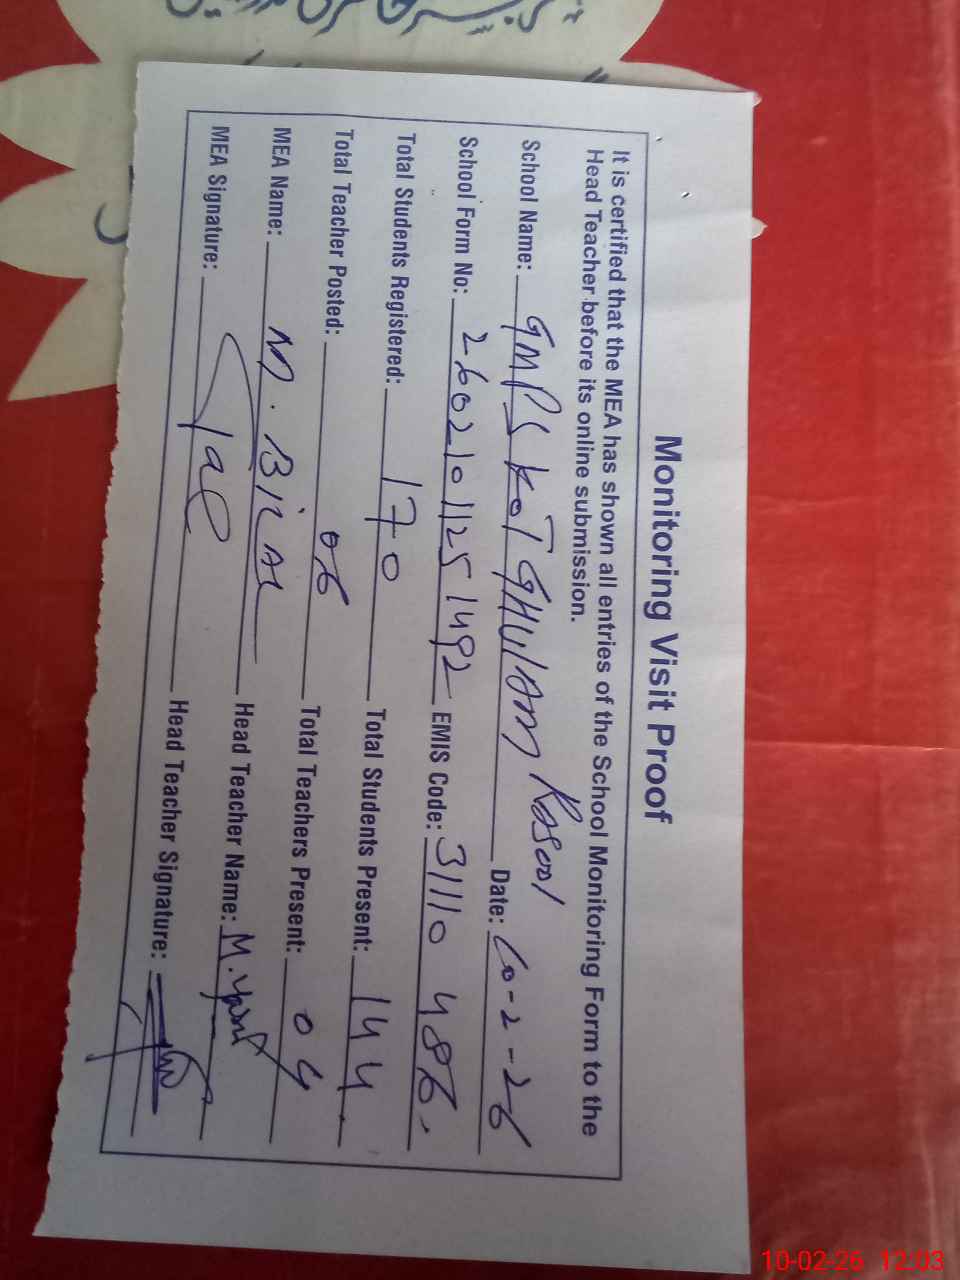 Monitoring Visit Proof
It is certified that the MEA has shown all entries of the School Monitoring Form to the
Head Teacher before its online submission.
School Name: GMPS KOT GHULAM Rasool Date: 10-2-26
School Form No: 26021011251492 EMIS Code: 31110486
Total Students Registered: 170 Total Students Present: 144
Total Teacher Posted: 06 Total Teachers Present: 04
MEA Name: M. Bilal Head Teacher Name: M.
MEA Signature: Head Teacher Signature:
10-02-26 12:03